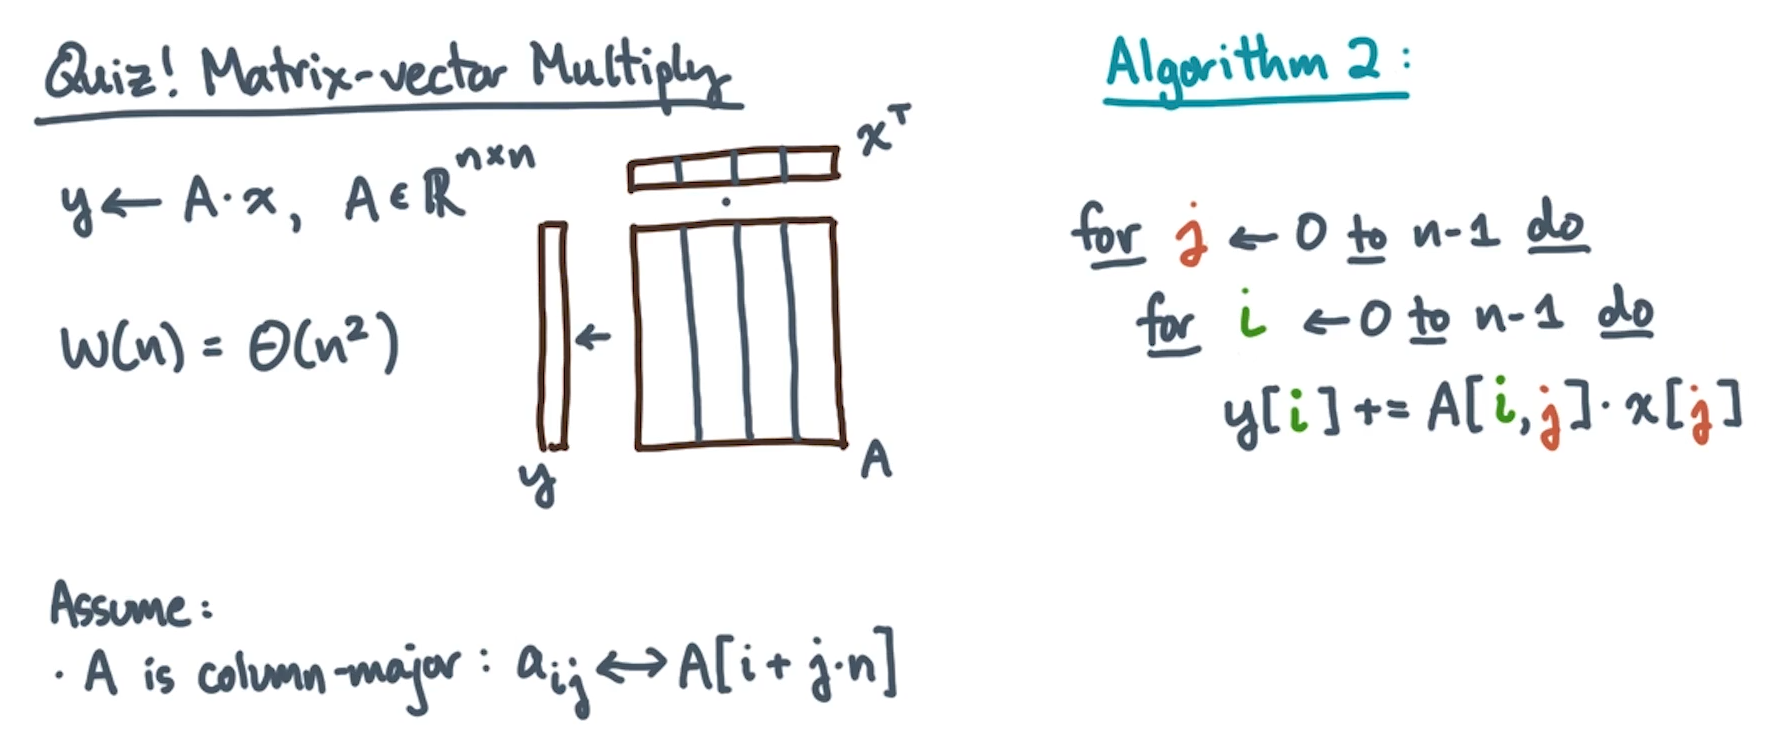 Quiz! Matrix-vector Multiply
y ← A·x, A ∈ ℝⁿˣⁿ
W(n) = Θ(n²)
xᵀ
·
←
y
A
Assume:
· A is column-major: aᵢⱼ ↔ A[i + j·n]
Algorithm 2:
for j ← 0 to n-1 do
for i ← 0 to n-1 do
y[i] += A[i,j]· x[j]